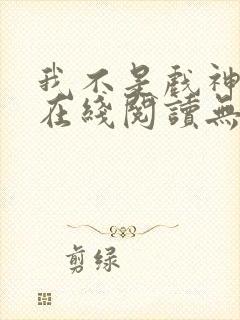 我不是戏神
在綫閱讀無
剪绿